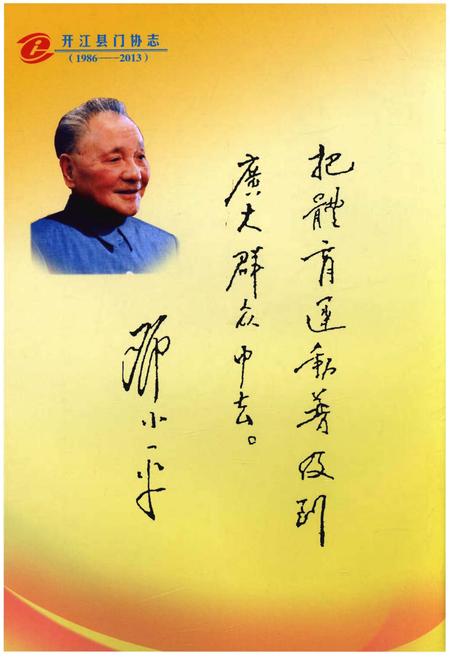 开江县门协志
(1986——2013)
把體育運動普及到
廣大群众中去。
邓小平